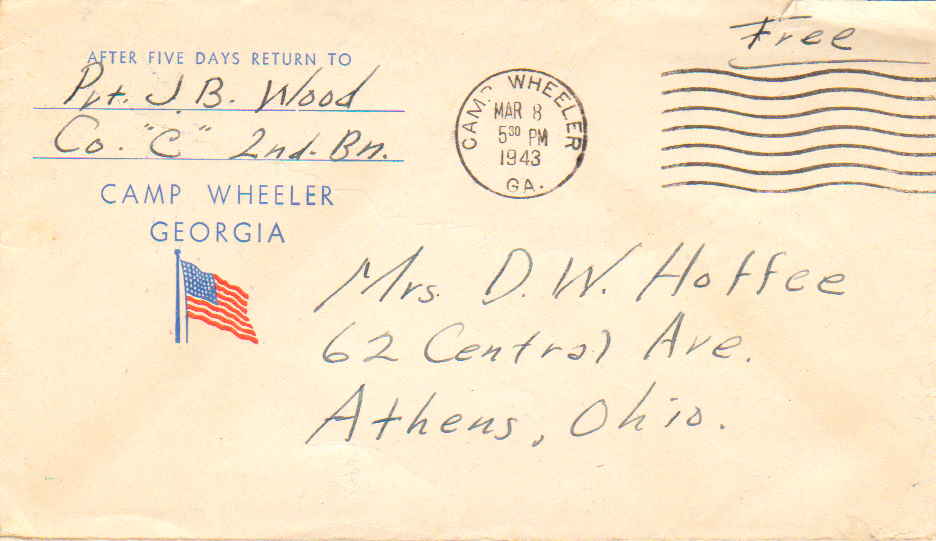 Free
AFTER FIVE DAYS RETURN TO
Pvt. J. B. Wood
Co. "C" 2nd. Bn.
CAMP WHEELER
GEORGIA
CAMP WHEELER
MAR 8
5 30 PM
1943
GA.
Mrs. D. W. Hoffee
62 Central Ave.
Athens, Ohio.